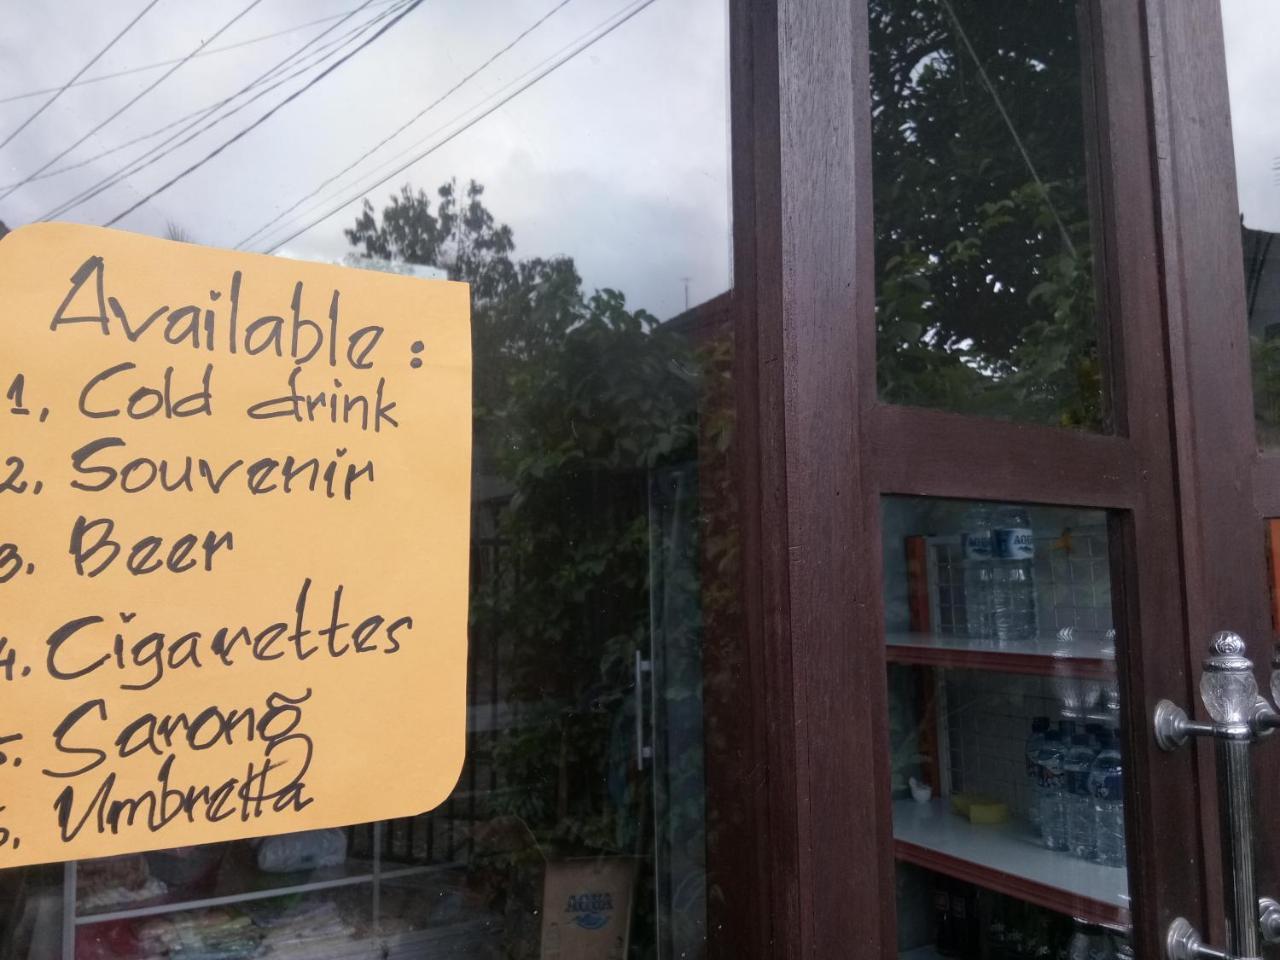 Available :
1. Cold drink
2. Souvenir
3. Beer
4. Cigarettes
5. Sarong
6. Umbretta
AQUA
AQUA